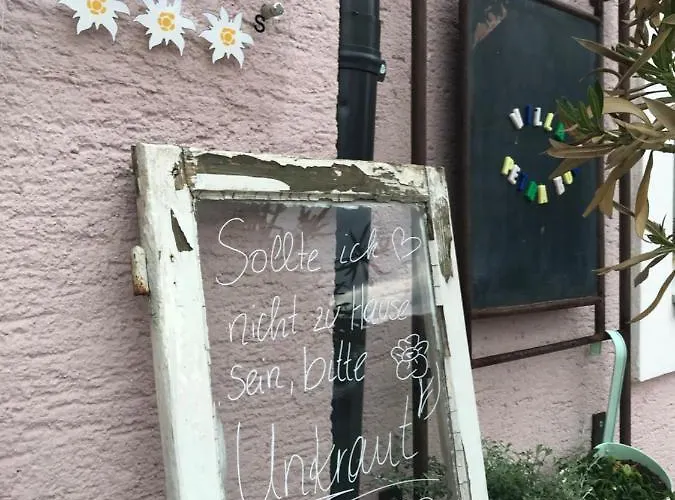 S
VILLA
Sollte ich
nicht zu Hause
sein, bitte
Unkraut